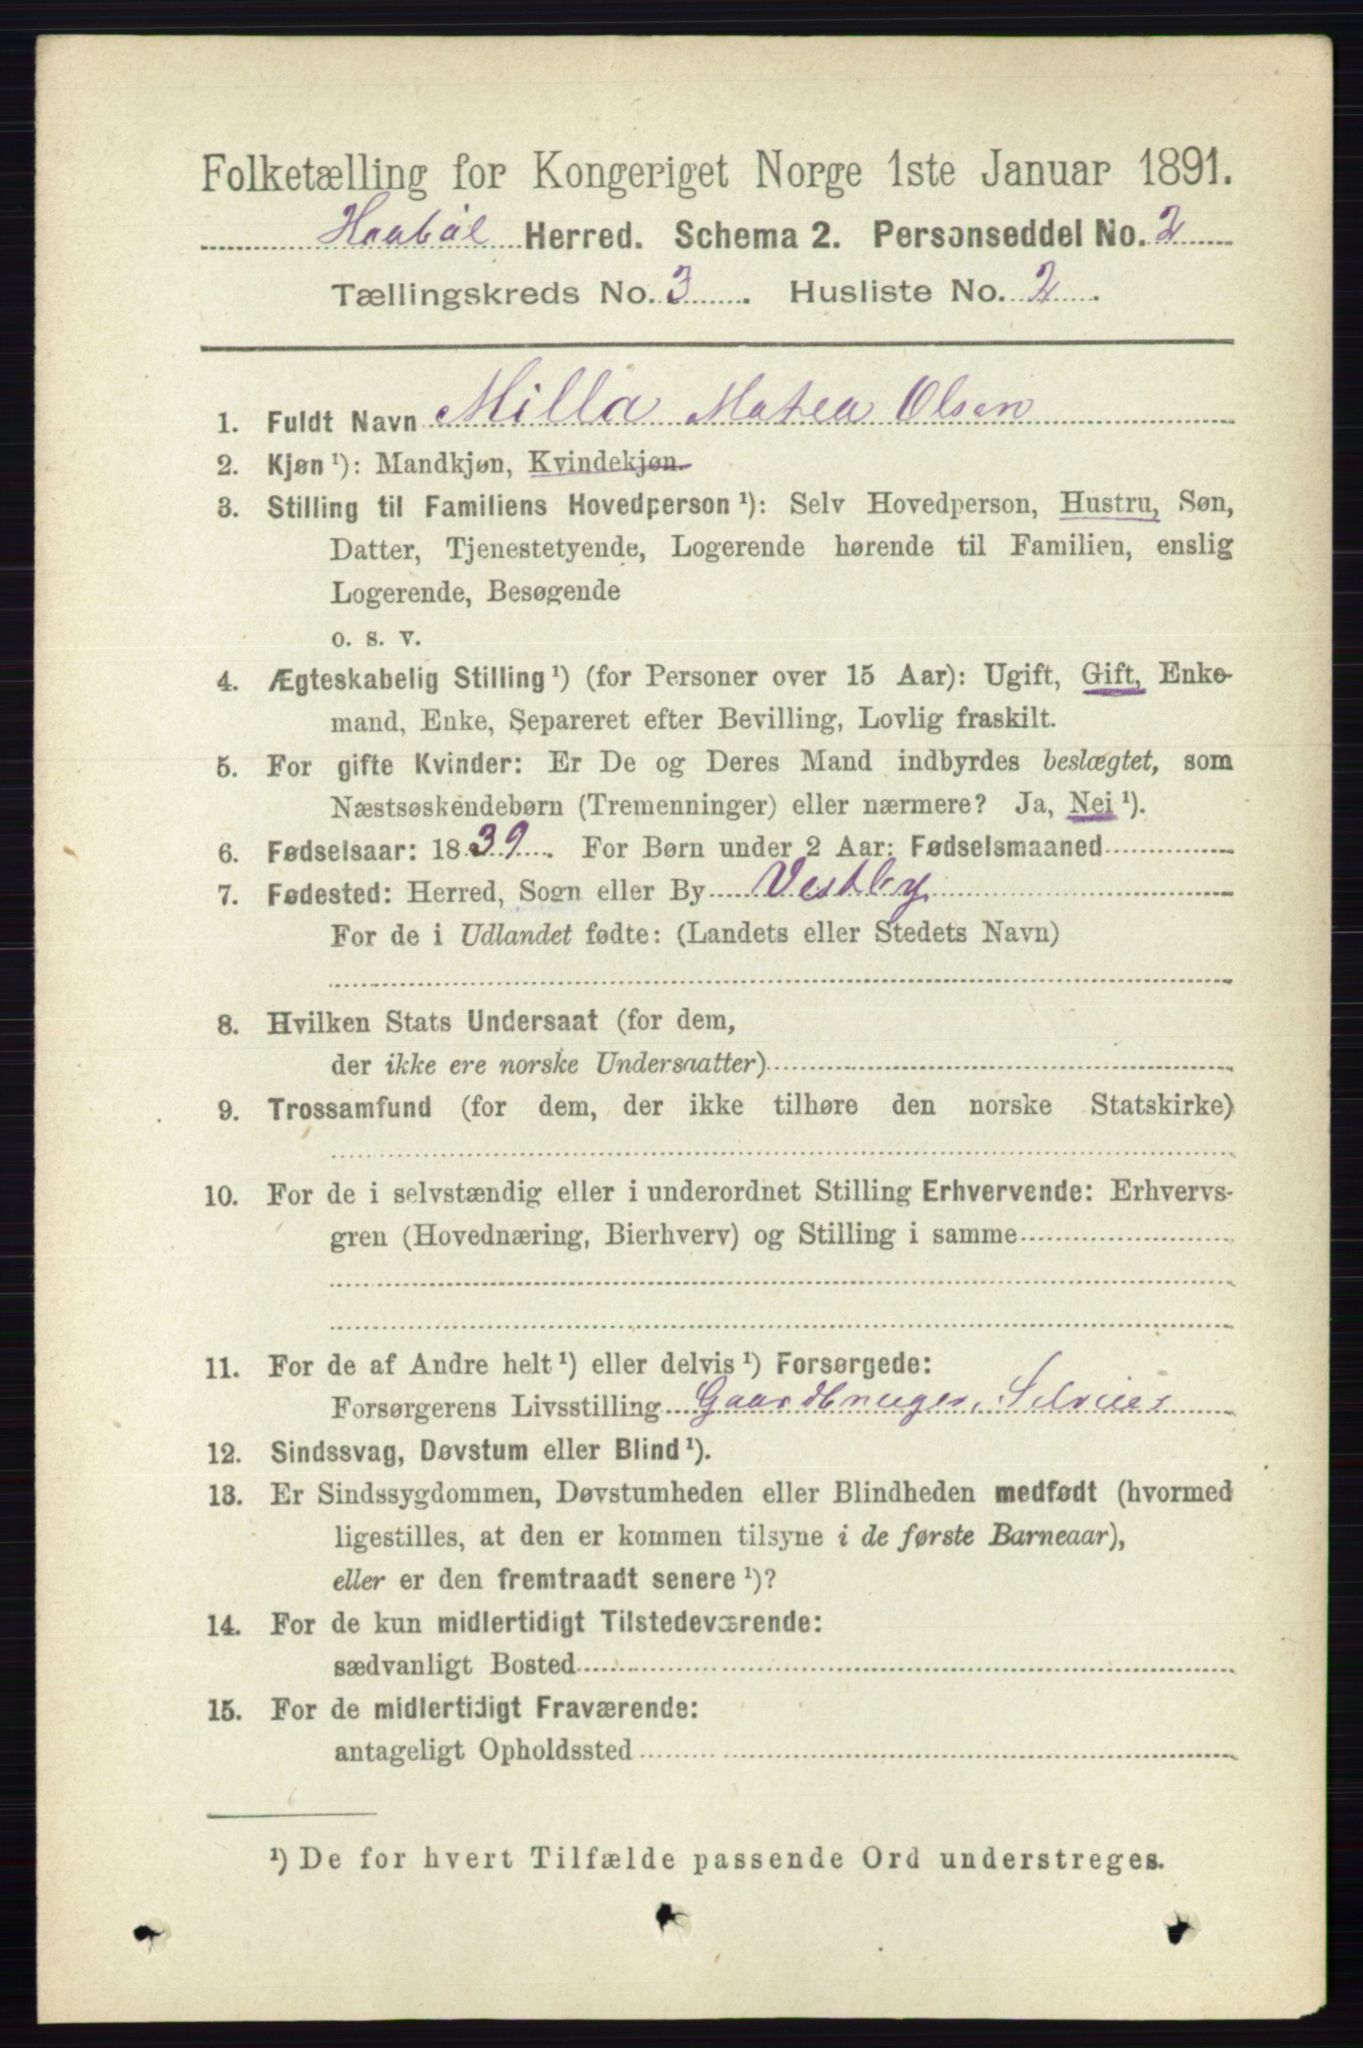 Folketælling for Kongeriget Norge 1ste Januar 1891.
Haabøl Herred. Schema 2. Personseddel No. 2
Tællingskreds No. 3. Husliste No. 2.
1. Fuldt Navn Milla Matea Olsen
2. Kjøn ¹): Mandkjøn, Kvindekjøn.
3. Stilling til Familiens Hovedperson ¹): Selv Hovedperson, Hustru, Søn,
Datter, Tjenestetyende, Logerende hørende til Familien, enslig
Logerende, Besøgende
o. s. v.
4. Ægteskabelig Stilling ¹) (for Personer over 15 Aar): Ugift, Gift, Enke-
mand, Enke, Separeret efter Bevilling, Lovlig fraskilt.
5. For gifte Kvinder: Er De og Deres Mand indbyrdes beslægtet, som
Næstsøskendebørn (Tremenninger) eller nærmere? Ja, Nei ¹).
6. Fødselsaar: 1839. For Børn under 2 Aar: Fødselsmaaned
7. Fødested: Herred, Sogn eller By Vestby
For de i Udlandet fødte: (Landets eller Stedets Navn)
8. Hvilken Stats Undersaat (for dem,
der ikke ere norske Undersaatter)
9. Trossamfund (for dem, der ikke tilhøre den norske Statskirke)
10. For de i selvstændig eller i underordnet Stilling Erhvervende: Erhvervs-
gren (Hovednæring, Bierhverv) og Stilling i samme
11. For de af Andre helt ¹) eller delvis ¹) Forsørgede:
Forsørgerens Livsstilling Gaardbruger, Selveier
12. Sindssvag, Døvstum eller Blind ¹).
13. Er Sindssygdommen, Døvstumheden eller Blindheden medfødt (hvormed
ligestilles, at den er kommen tilsyne i de første Barneaar),
eller er den fremtraadt senere ¹)?
14. For de kun midlertidigt Tilstedeværende:
sædvanligt Bosted
15. For de midlertidigt Fraværende:
antageligt Opholdssted
¹) De for hvert Tilfælde passende Ord understreges.